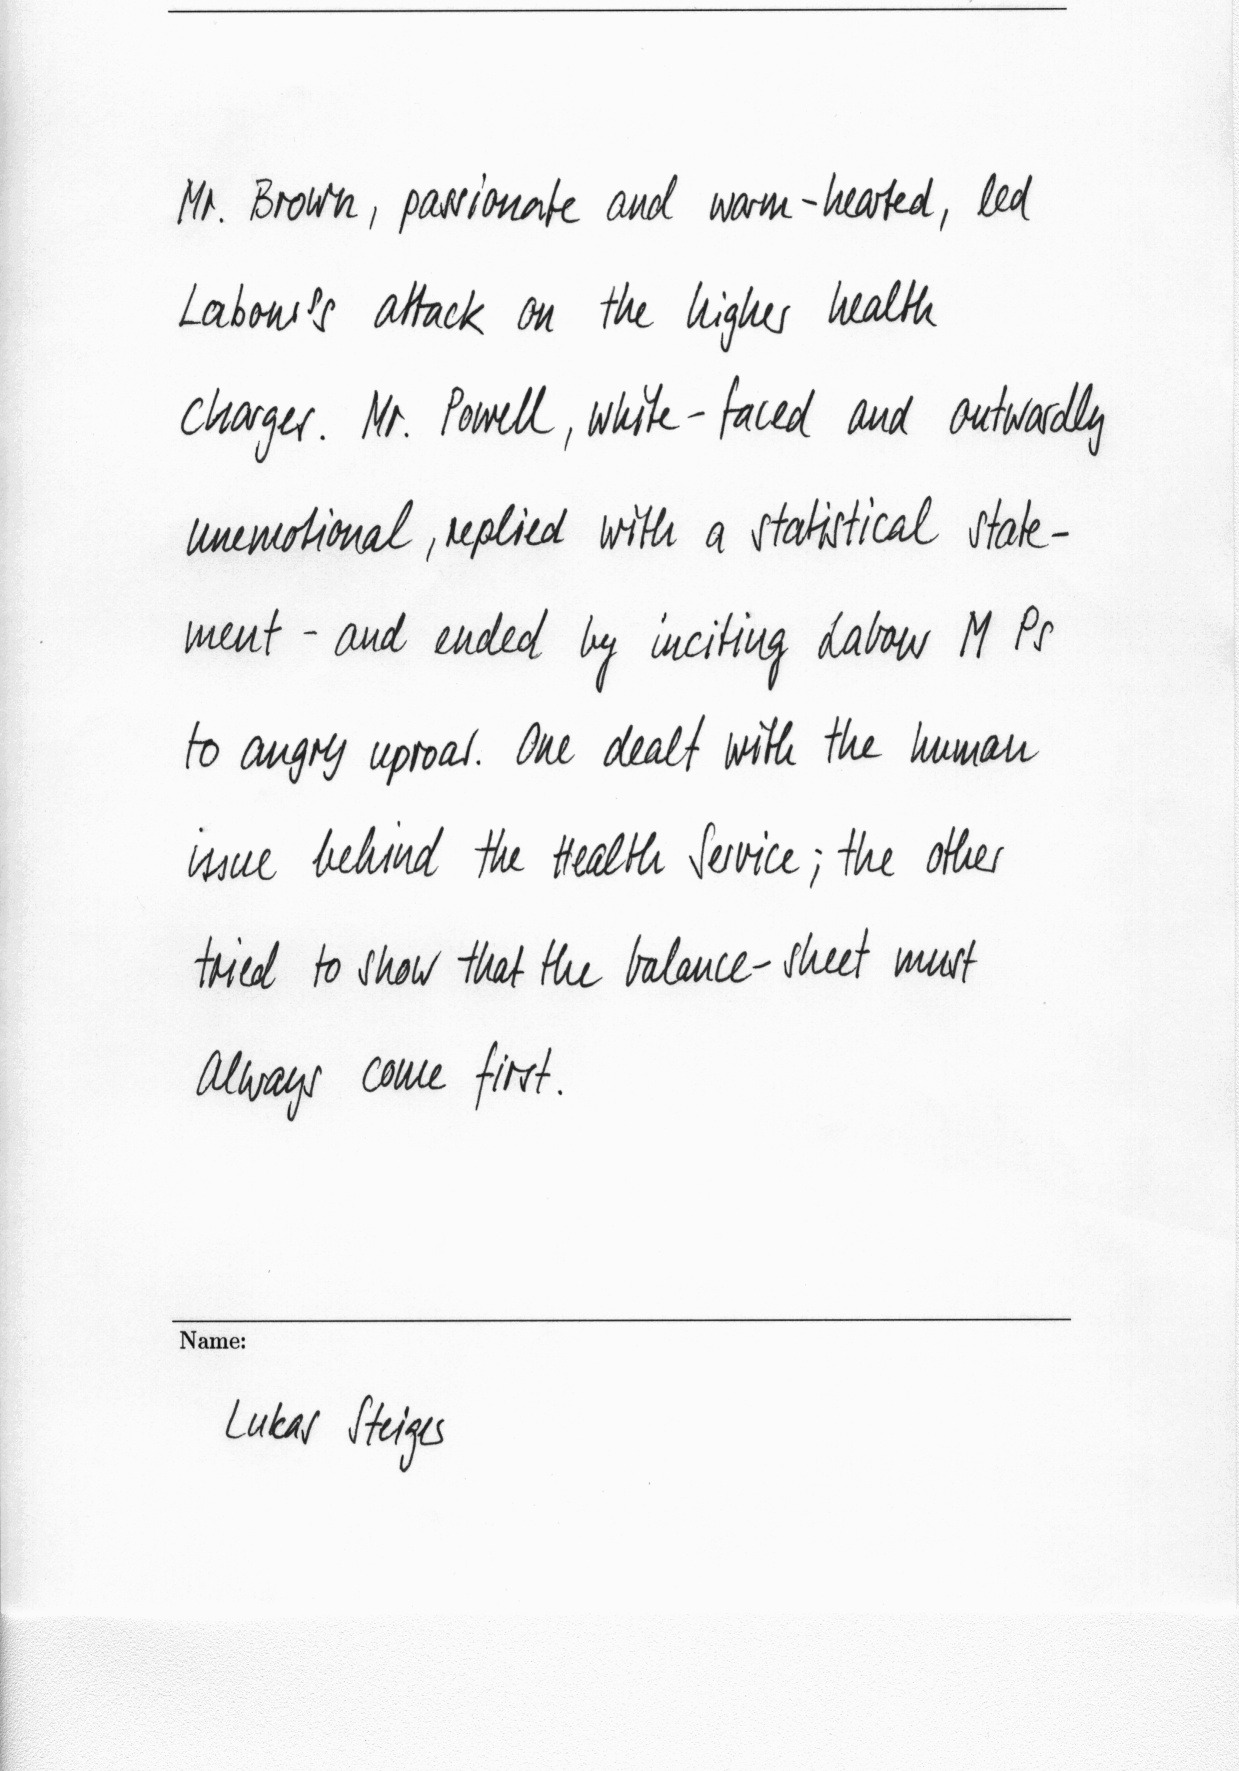 Mr. Brown, passionate and warm-hearted, led
Labour's attack on the higher health
charges. Mr. Powell, white-faced and outwardly
unemotional, replied with a statistical state-
ment - and ended by inciting Labour M Ps
to angry uproar. One dealt with the human
issue behind the Health Service; the other
tried to show that the balance-sheet must
always come first.
Name:
Lukas Steiger